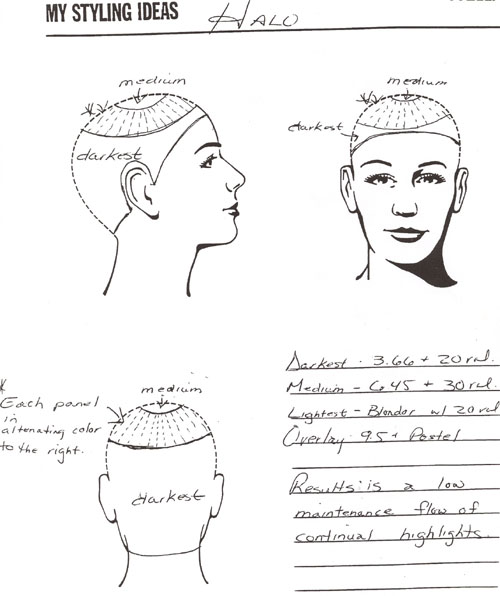 MY STYLING IDEAS
HALO
medium
darkest
medium
darkest
medium
darkest
Each panel
in
alternating color
to the right.
Darkest - 3.66 + 20 vol.
Medium - 6.45 + 30 vol.
Lightest - Blonder w/ 20 vol
Overlay 9.5 + Pastel
Results: is a low
maintenance flow of
continual highlights.